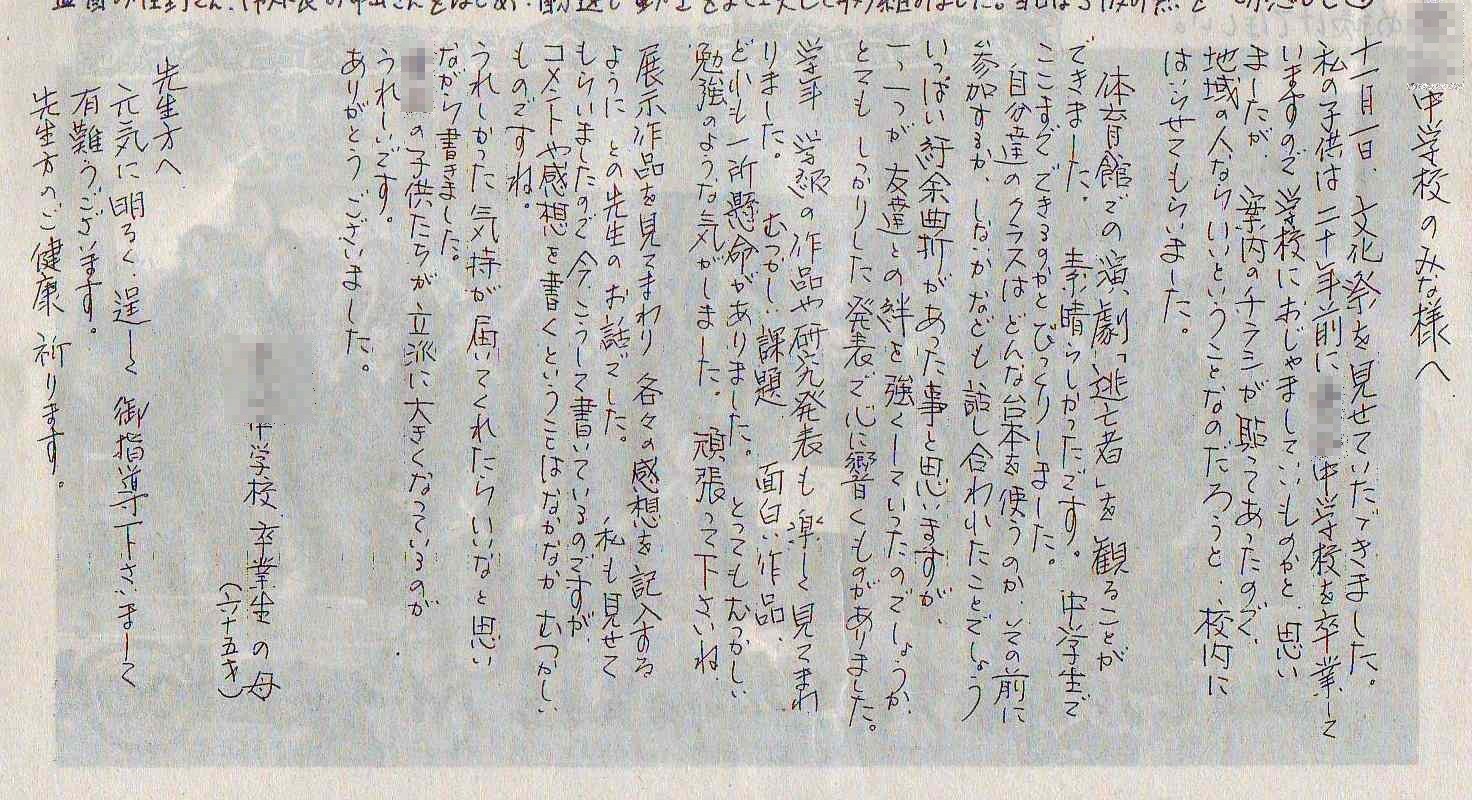 中学校のみな様へ
十一月一日、文化祭を見せていただきました。
私の子供は二十年前に 中学校を卒業して
いますので 学校におじゃましていいものかと、思い
ましたが、案内のチラシが貼ってあったので、
地域の人ならいいということなのだろうと、校内に
はらせてもらいました。
体育館での演劇「逃亡者」を観ることが
できました。 素晴らしかったです。 中学生で
ここまで できるのかとびっくりしました。
自分達のクラスはどんな台本を使うのか、その前に
参加するか、しないかなども話し合われたことでしょう
いっぱい紆余曲折があった事と思いますが、
一つ一つが 友達との絆を強くしていったのでしょうか、
とても しっかりした発表で心に響くものがありました。
学年 学級の作品や研究発表も楽しく見てまわ
りました。 むつかしい課題 面白い作品、
ど小も一所懸命がありました。 とってもむつかしい
勉強のような気がしました。 頑張って下さいね、
展示作品を見てまわり 各々の感想を記入する
ように との先生のお話でした。 私も見せて
もらいましたので今、こうして書いているのですが、
コメントや感想を書くということはなかなか むつかしい
ものですね。
うれしかった気持が届いてくれたらいいなと思い
ながら書きました。
の子供たちが立派に大きくなっているのが
うれしいです。
ありがとうございました。
中学校 卒業生の母
(六十五才)
先生方へ
元気に明るく、逞しく 御指導下さいまして
有難うございます。
先生方のご健康 祈ります。